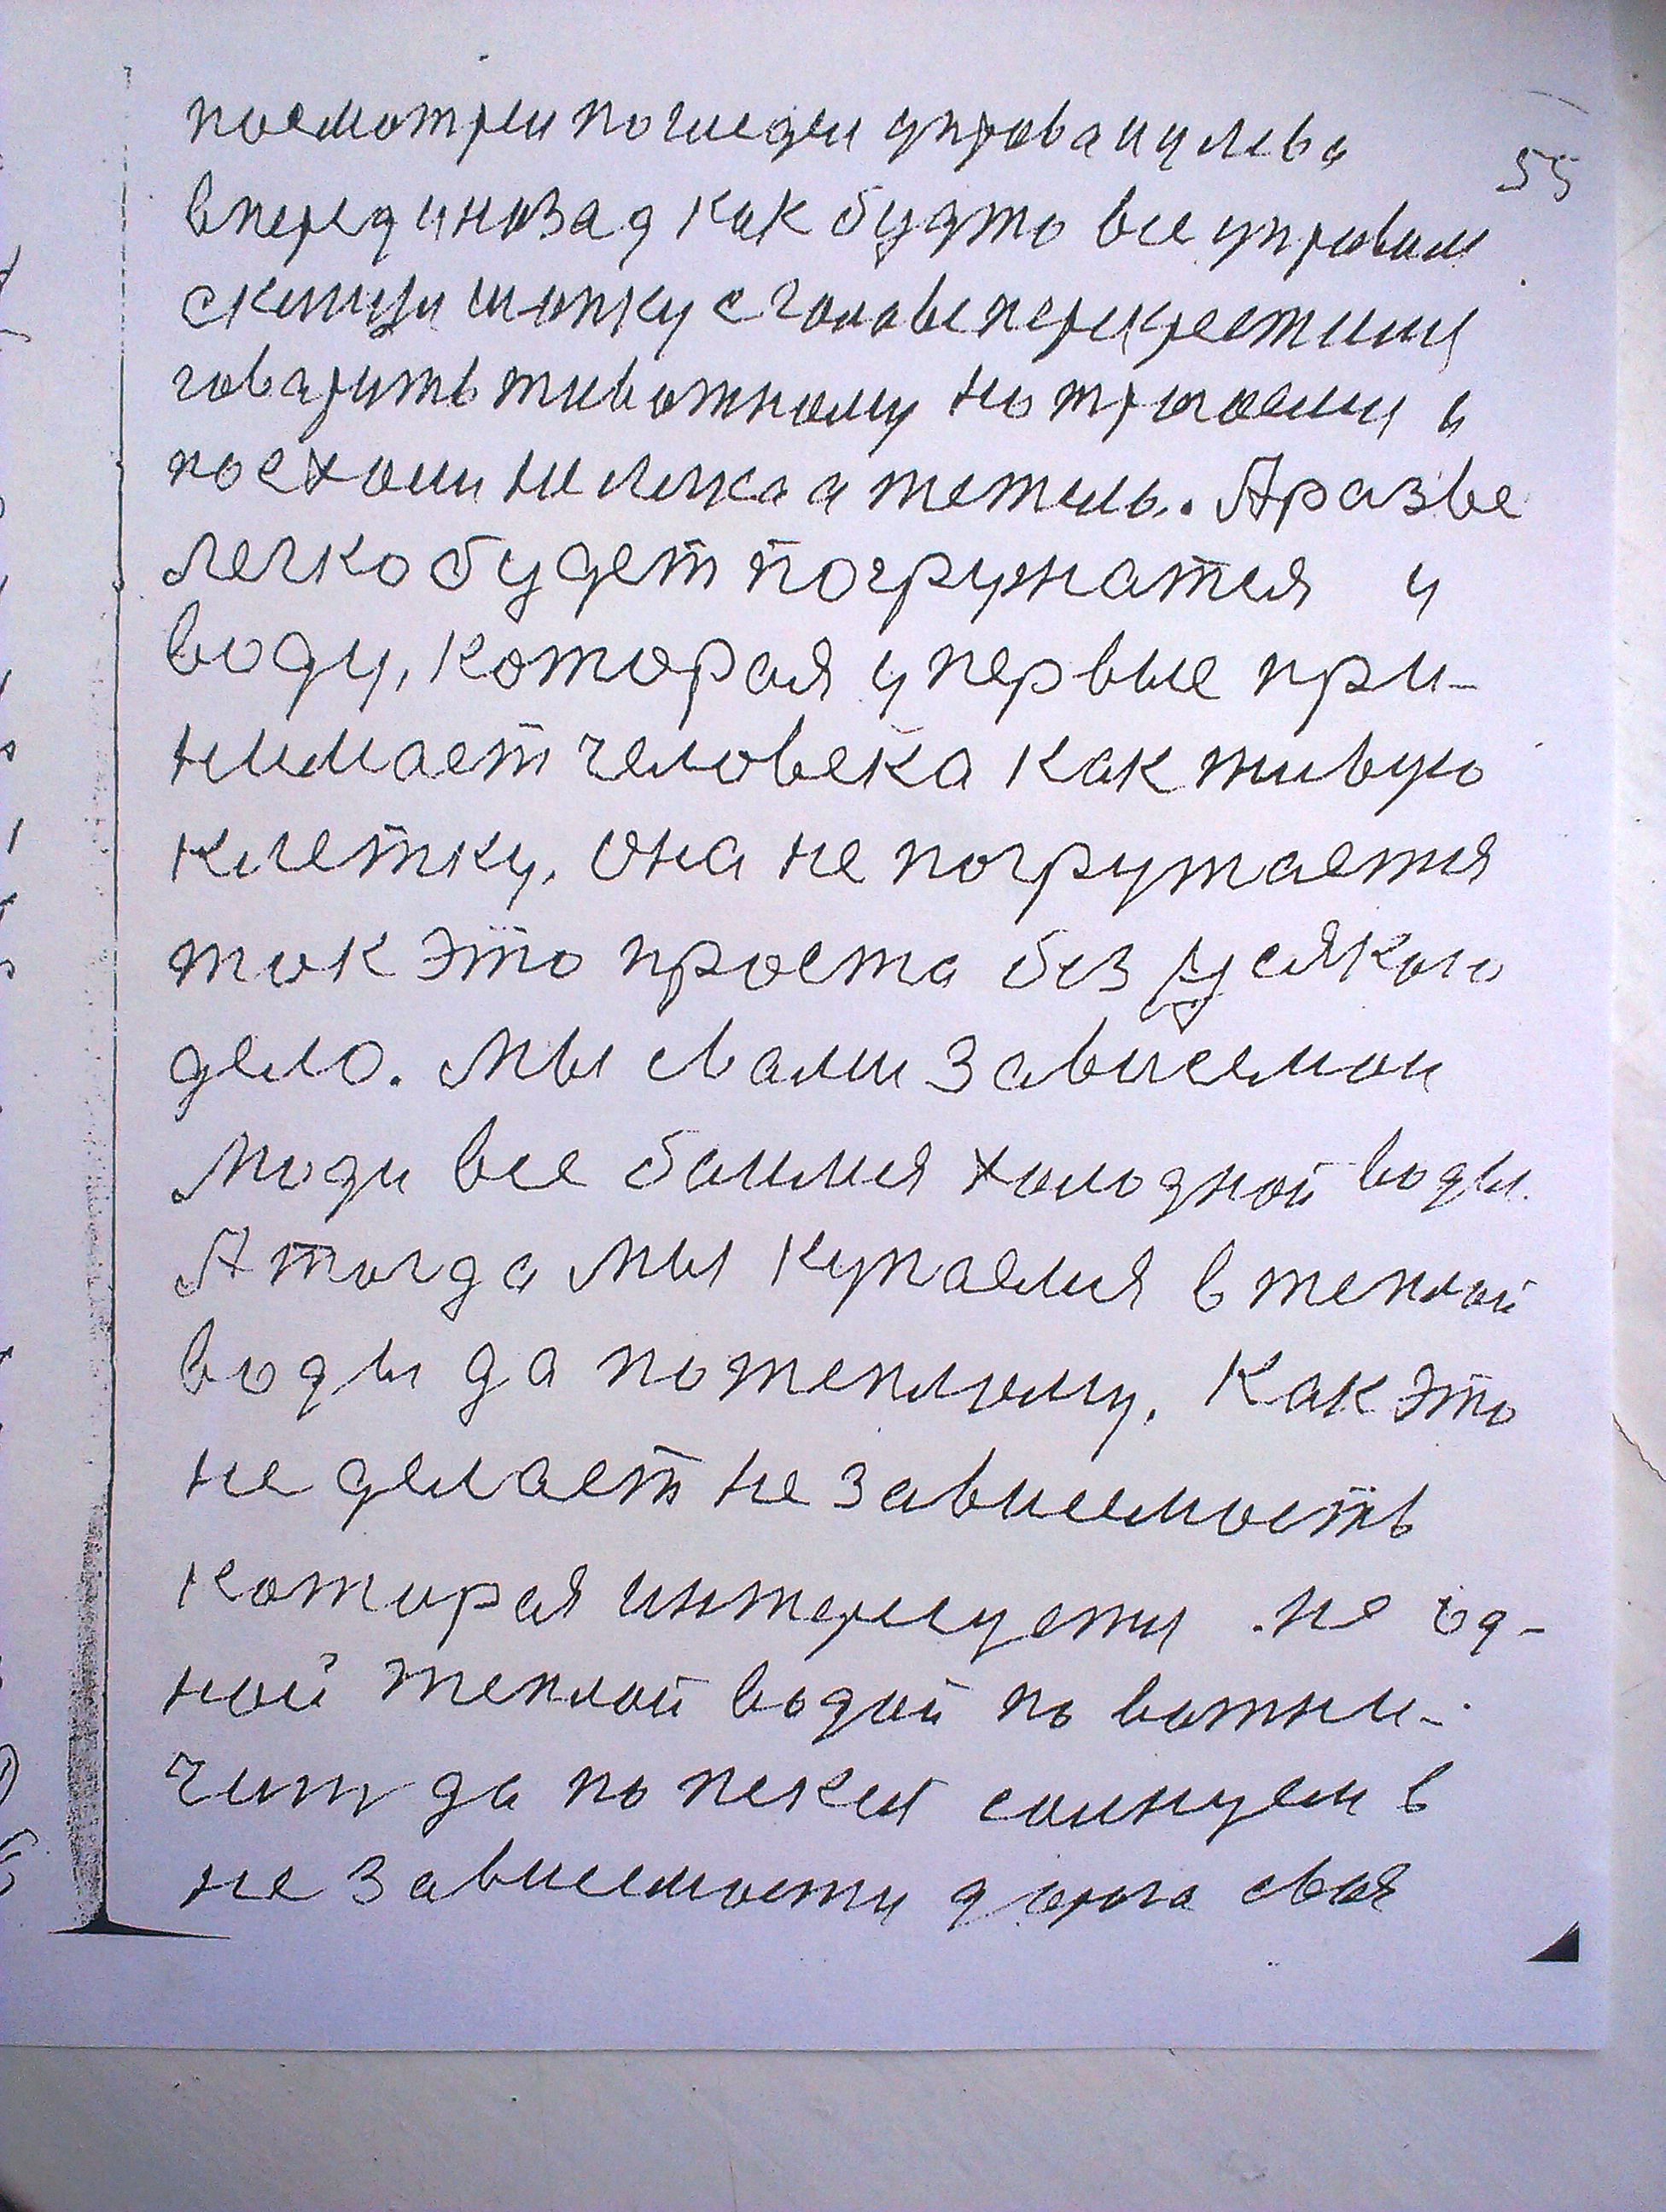 посмотрел поглядел управа и улева
55
вперед и назад как будто все управил
скинул шапку с головы перекрестился
говарить животному но трогаемся и
поехали не легка а тежило. А разве
легко будет погружатся у
воду, которая упервые при-
нимает человека как живую
клетку. Она не погружается
так это проста без усякого
дело. Мы с вами зависемои
люди все боимся холодной воды.
А тогда мы купаемся в теплой
воды да потеплому. Как это
не делает не зависемость
которая интересуется не од-
ной теплой водой
да солнцем в
не зависемости дорога своя